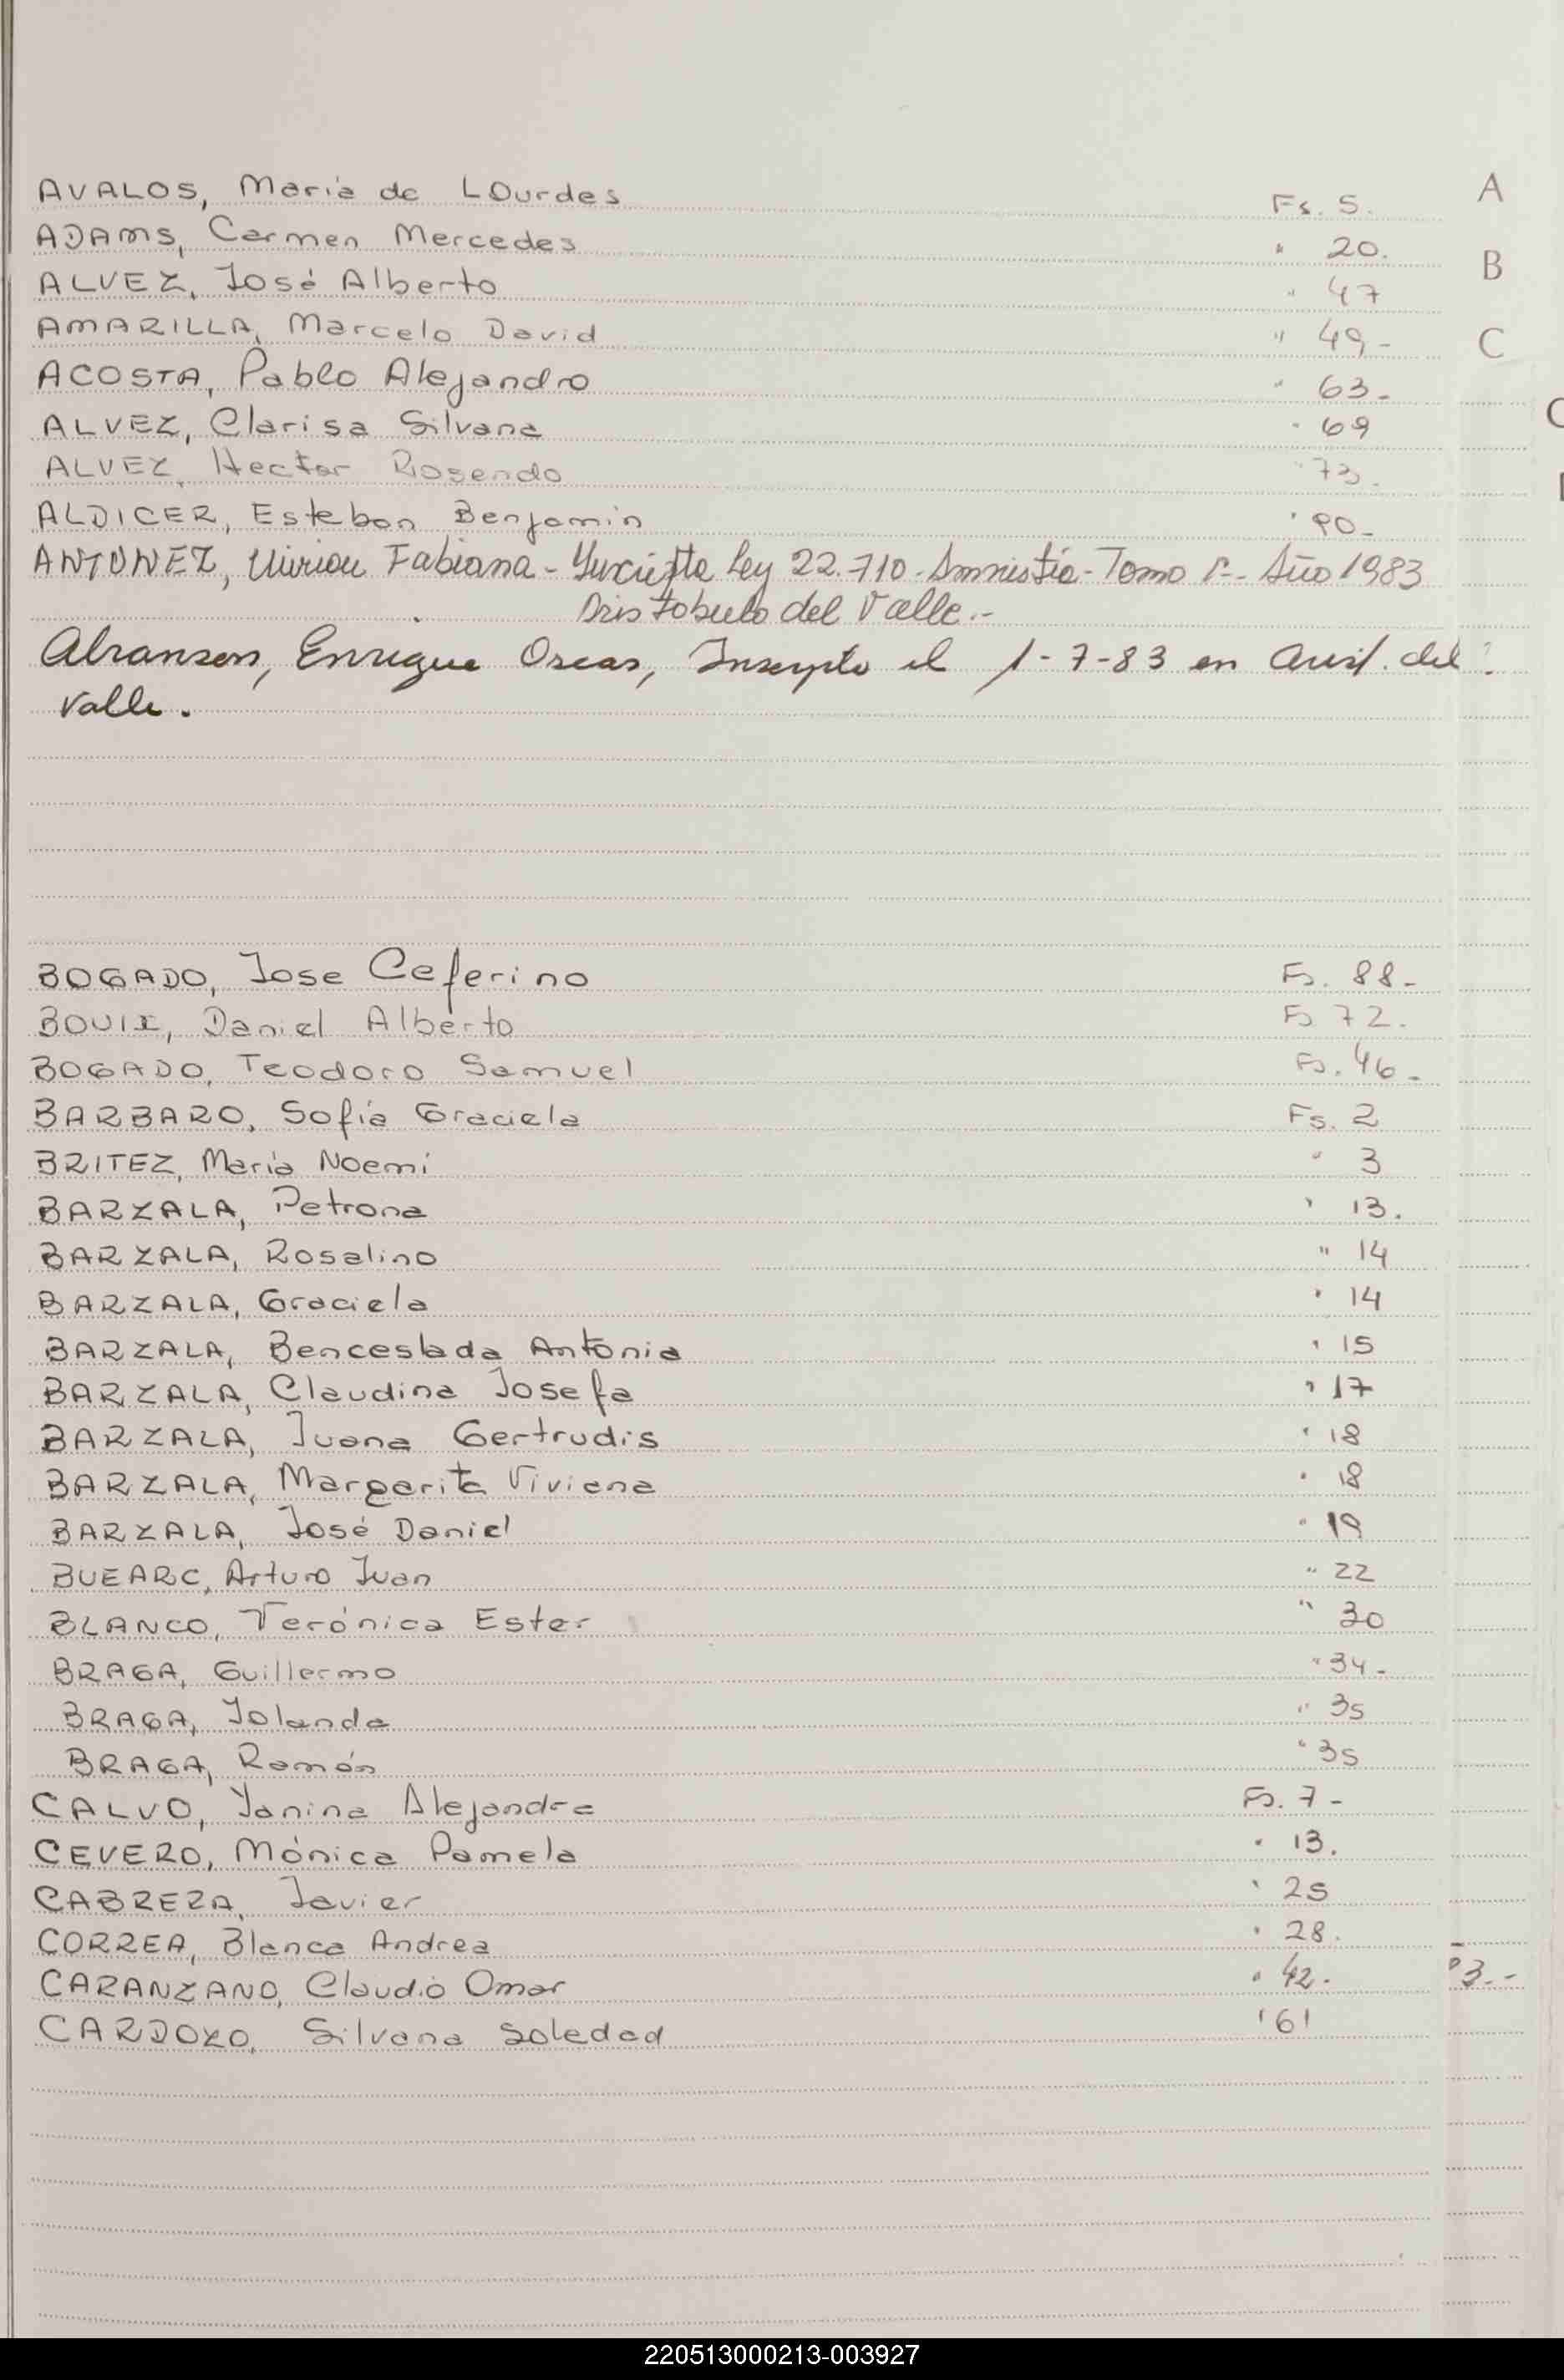 A
AVALOS, Maria de LOurdes Fs. 5.
ADAMS, Carmen Mercedes " 20.
B
ALVEZ, José Alberto " 47
AMARILLA, Marcelo David " 49,-
C
ACOSTA, Pablo Alejandro " 63-
ALVEZ, Clarisa Silvana " 69
ALVEZ, Hector Rosendo " 73.
ALDICER, Esteban Benjamin " 90-
ANTUNEZ, Mirian Fabiana - Inscripta Ley 22.710 - Amnistía - Tomo - Año 1983
Aristobulo del Valle.-
Enrique Oscar, Inscripto el 1-7-83 en Arist. del
Valle.
BOGADO, Jose Ceferino Fs. 88-
BOUIX, Daniel Alberto Fs 72.
BOGADO, Teodoro Samuel Fs. 46-
BARBARO, Sofía Graciela Fs. 2
BRITEZ, María Noemí " 3
BARZALA, Petrona " 13.
BARZALA, Rosalino " 14
BARZALA, Graciela " 14
BARZALA, Benceslada Antonia " 15
BARZALA, Claudina Josefa " 17
BARZALA, Juana Gertrudis " 18
BARZALA, Margarita Viviana " 18
BARZALA, José Daniel " 19
BUEARC, Arturo Juan " 22
BLANCO, Verónica Ester " 30
BRAGA, Guillermo " 34-
BRAGA, Iolanda " 35
BRAGA, Ramón " 35
CALVO, Yanina Alejandra Fs. 7-
CEVERO, Mónica Pamela " 13.
CABRERA, Javier " 25
CORREA, Blanca Andrea " 28.
CARANZANO, Claudio Omar " 42.
CARDOZO, Silvana Soledad " 61
220513000213-003927